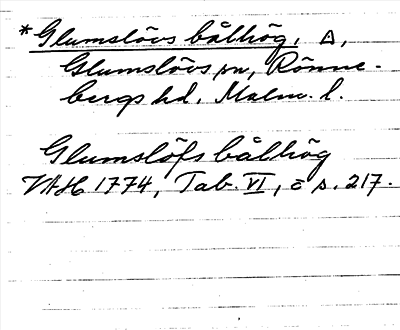 *Glumslövs bålhög. Δ,
Glumslövs sn, Rönne-
bergs hd, Malm. l.
Glumslöfs bålhög
VAH 1774, Tab. VI, c s. 217.